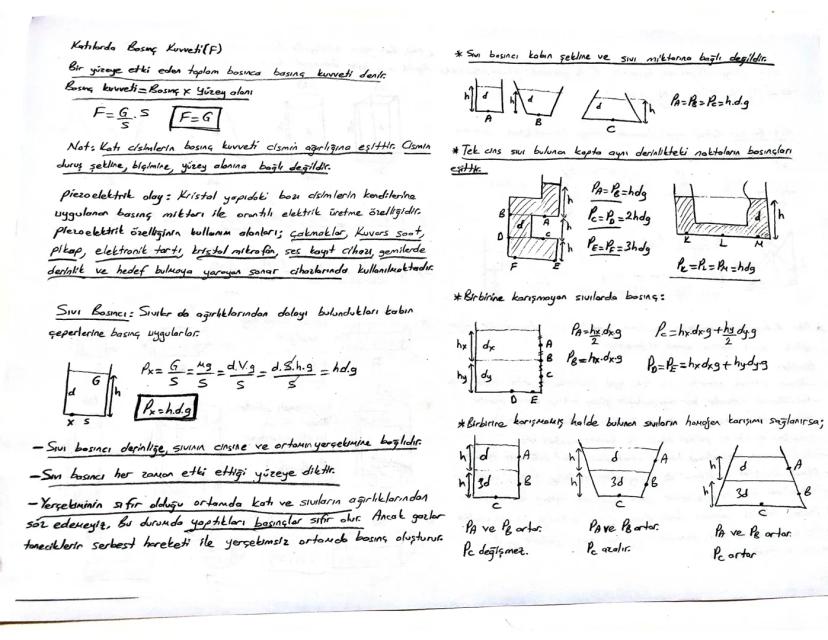 Katılarda Basınç Kuvveti (F)
Bir yüzeye etki eden toplam basınca basınç kuvveti denir.
Basınç kuvveti = Basınç x Yüzey alanı
F = G/S . S F = G
Not: Katı cisimlerin basınç kuvveti cismin ağırlığına eşittir. Cismin
duruş şekline, biçimine, yüzey alanına bağlı değildir.
Piezoelektrik olay: Kristal yapıdaki bazı cisimlerin kendilerine
uygulanan basınç miktarı ile orantılı elektrik üretme özelliğidir.
Piezoelektrik özelliğinin kullanım alanları; çakmaklar, Kuvars saat,
pikap, elektronik tartı, kristal mikrofon, ses kayıt cihazı, gemilerde
derinlik ve hedef bulmaya yarayan sonar cihazlarında kullanılmaktadır.
Sıvı Basıncı: Sıvılar da ağırlıklarından dolayı bulundukları kabın
çeperlerine basınç uygularlar.
d G h
x S
Px = G/S = mg/S = d.V.g/S = d.S.h.g/S = hdg
Px = h.d.g
- Sıvı basıncı derinliğe, sıvının cinsine ve ortamın yerçekimine bağlıdır.
- Sıvı basıncı her zaman etki ettiği yüzeye diktir.
- Yerçekiminin sıfır olduğu ortamda katı ve sıvıların ağırlıklarından
söz edemeyiz. Bu durumda yaptıkları basınçlar sıfır olur. Ancak gazlar
taneciklerin serbest hareketi ile yerçekimsiz ortamda basınç oluşturur.
* Sıvı basıncı kabın şekline ve sıvı miktarına bağlı değildir.
h d h d d h
A B C
PA = PB = PC = h.d.g
* Tek cins sıvı bulunan kapta aynı derinlikteki noktaların basınçları
eşittir.
h B A d h D C h F E
PA = PB = hdg
PC = PD = 2hdg
PE = PF = 3hdg
d h
K L M
PK = PL = PM = hdg
* Birbirine karışmayan sıvılarda basınç:
hx dx A
B
hy dy C
D E
PA = hx/2.dx.g PC = hx.dx.g + hy/2 dy.g
PB = hx.dx.g PD = PE = hxdxg + hydy.g
* Birbirine karışmamış halde bulunan sıvıların homojen karışımı sağlanırsa;
h d A h d A h d A
h 3d B h 3d B h 3d B
C C C
PA ve PB artar. PA ve PB artar. PA ve PB artar.
PC değişmez. PC azalır. PC artar